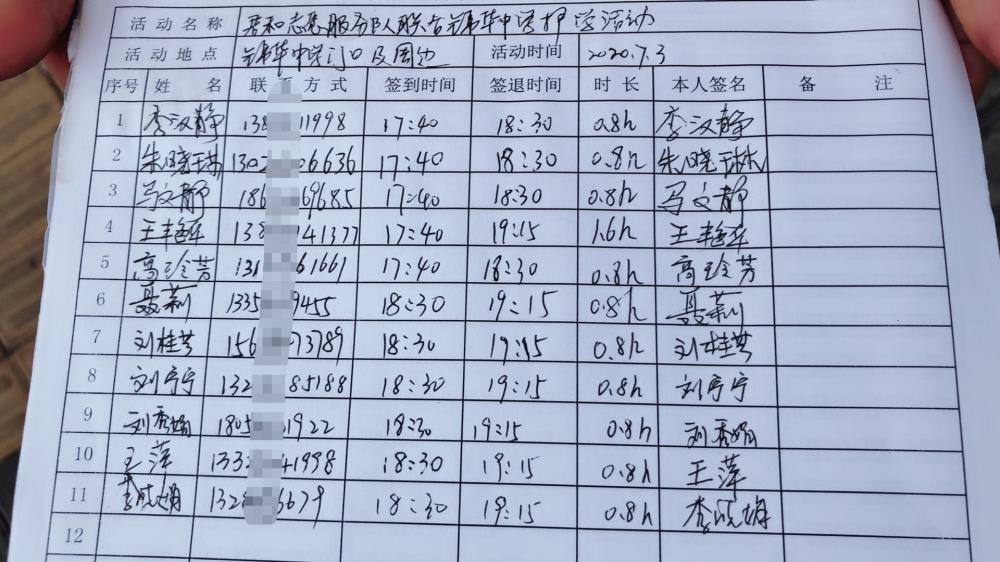 活动名称 志愿服务队联合锦华中学护学活动
活动地点 锦华中学门口及周边 活动时间 2020.7.3
序号 姓名 联 方式 签到时间 签退时间 时长 本人签名 备注
1 李汉静 138 11998 17:40 18:30 0.8h 李汉静
2 朱晓琳 130 06636 17:40 18:30 0.8h 朱晓琳
3 马文静 186 69685 17:40 18:30 0.8h 马文静
4 王艳华 138 41377 17:40 19:15 1.6h 王艳华
5 高玲芳 131 61661 17:40 18:30 0.8h 高玲芳
6 聂莉 1335 9455 18:30 19:15 0.8h 聂莉
7 刘桂芳 156 73789 18:30 19:15 0.8h 刘桂芳
8 刘宁宁 132 85188 18:30 19:15 0.8h 刘宁宁
9 刘秀娟 1805 1922 18:30 19:15 0.8h 刘秀娟
10 王萍 1332 41998 18:30 19:15 0.8h 王萍
11 李晓娟 1328 6679 18:30 19:15 0.8h 李晓娟
12